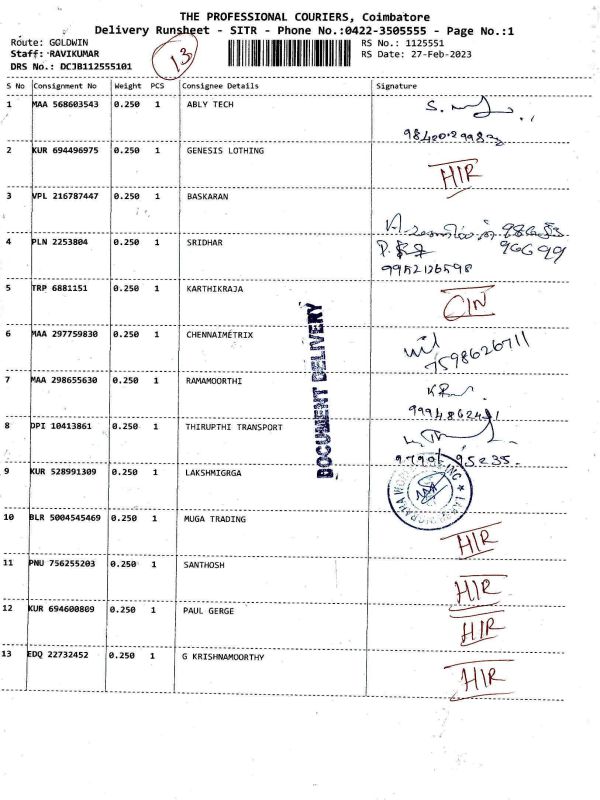 THE PROFESSIONAL COURIERS, Coimbatore
Delivery Runsheet - SITR - Phone No.:0422-3505555 - Page No.:1
Route: GOLDWIN
RS No.: 1125551
Staff: RAVIKUMAR
RS Date: 27-Feb-2023
DRS No.: DCJB112555101
13
S No Consignment No Weight PCS Consignee Details Signature
1 MAA 568603543 0.250 1 ABLY TECH
2 KUR 694496975 0.250 1 GENESIS LOTHING HIR
3 VPL 216787447 0.250 1 BASKARAN
4 PLN 2253804 0.250 1 SRIDHAR
9952126598
5 TRP 6881151 0.250 1 KARTHIKRAJA CIN
6 MAA 297759830 0.250 1 CHENNAIMETRIX
7598626711
7 MAA 298655630 0.250 1 RAMAMOORTHI
8 DPI 10413861 0.250 1 THIRUPTHI TRANSPORT
9 KUR 528991309 0.250 1 LAKSHMIGRGA
10 BLR 5004545469 0.250 1 MUGA TRADING HIR
11 PNU 756255203 0.250 1 SANTHOSH HIR
12 KUR 694600809 0.250 1 PAUL GERGE HIR
13 EDQ 22732452 0.250 1 G KRISHNAMOORTHY HIR
DOCUMENT DELIVERY